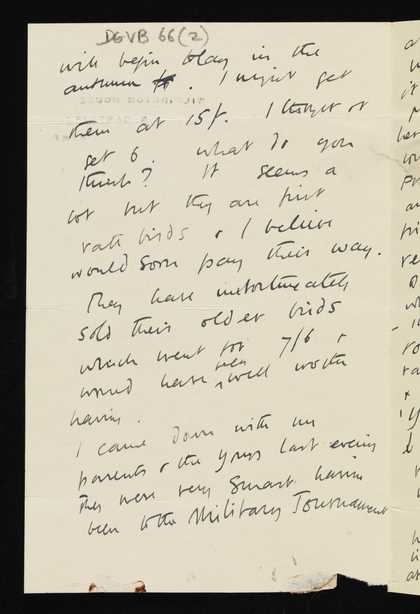 DGVB 66(2)
will begin lay in the
autumn. I might get
them at 15/-. I thought of
get 6. What do you
think? It seems a
lot but they are first
rate birds & I believe
would soon pay their way.
They have unfortunately
sold their older birds
which went for 7/6 &
would have been well worth
having.
I came down with my
parents & the Guys last evening
They were very smart having
been to the Military Tournament